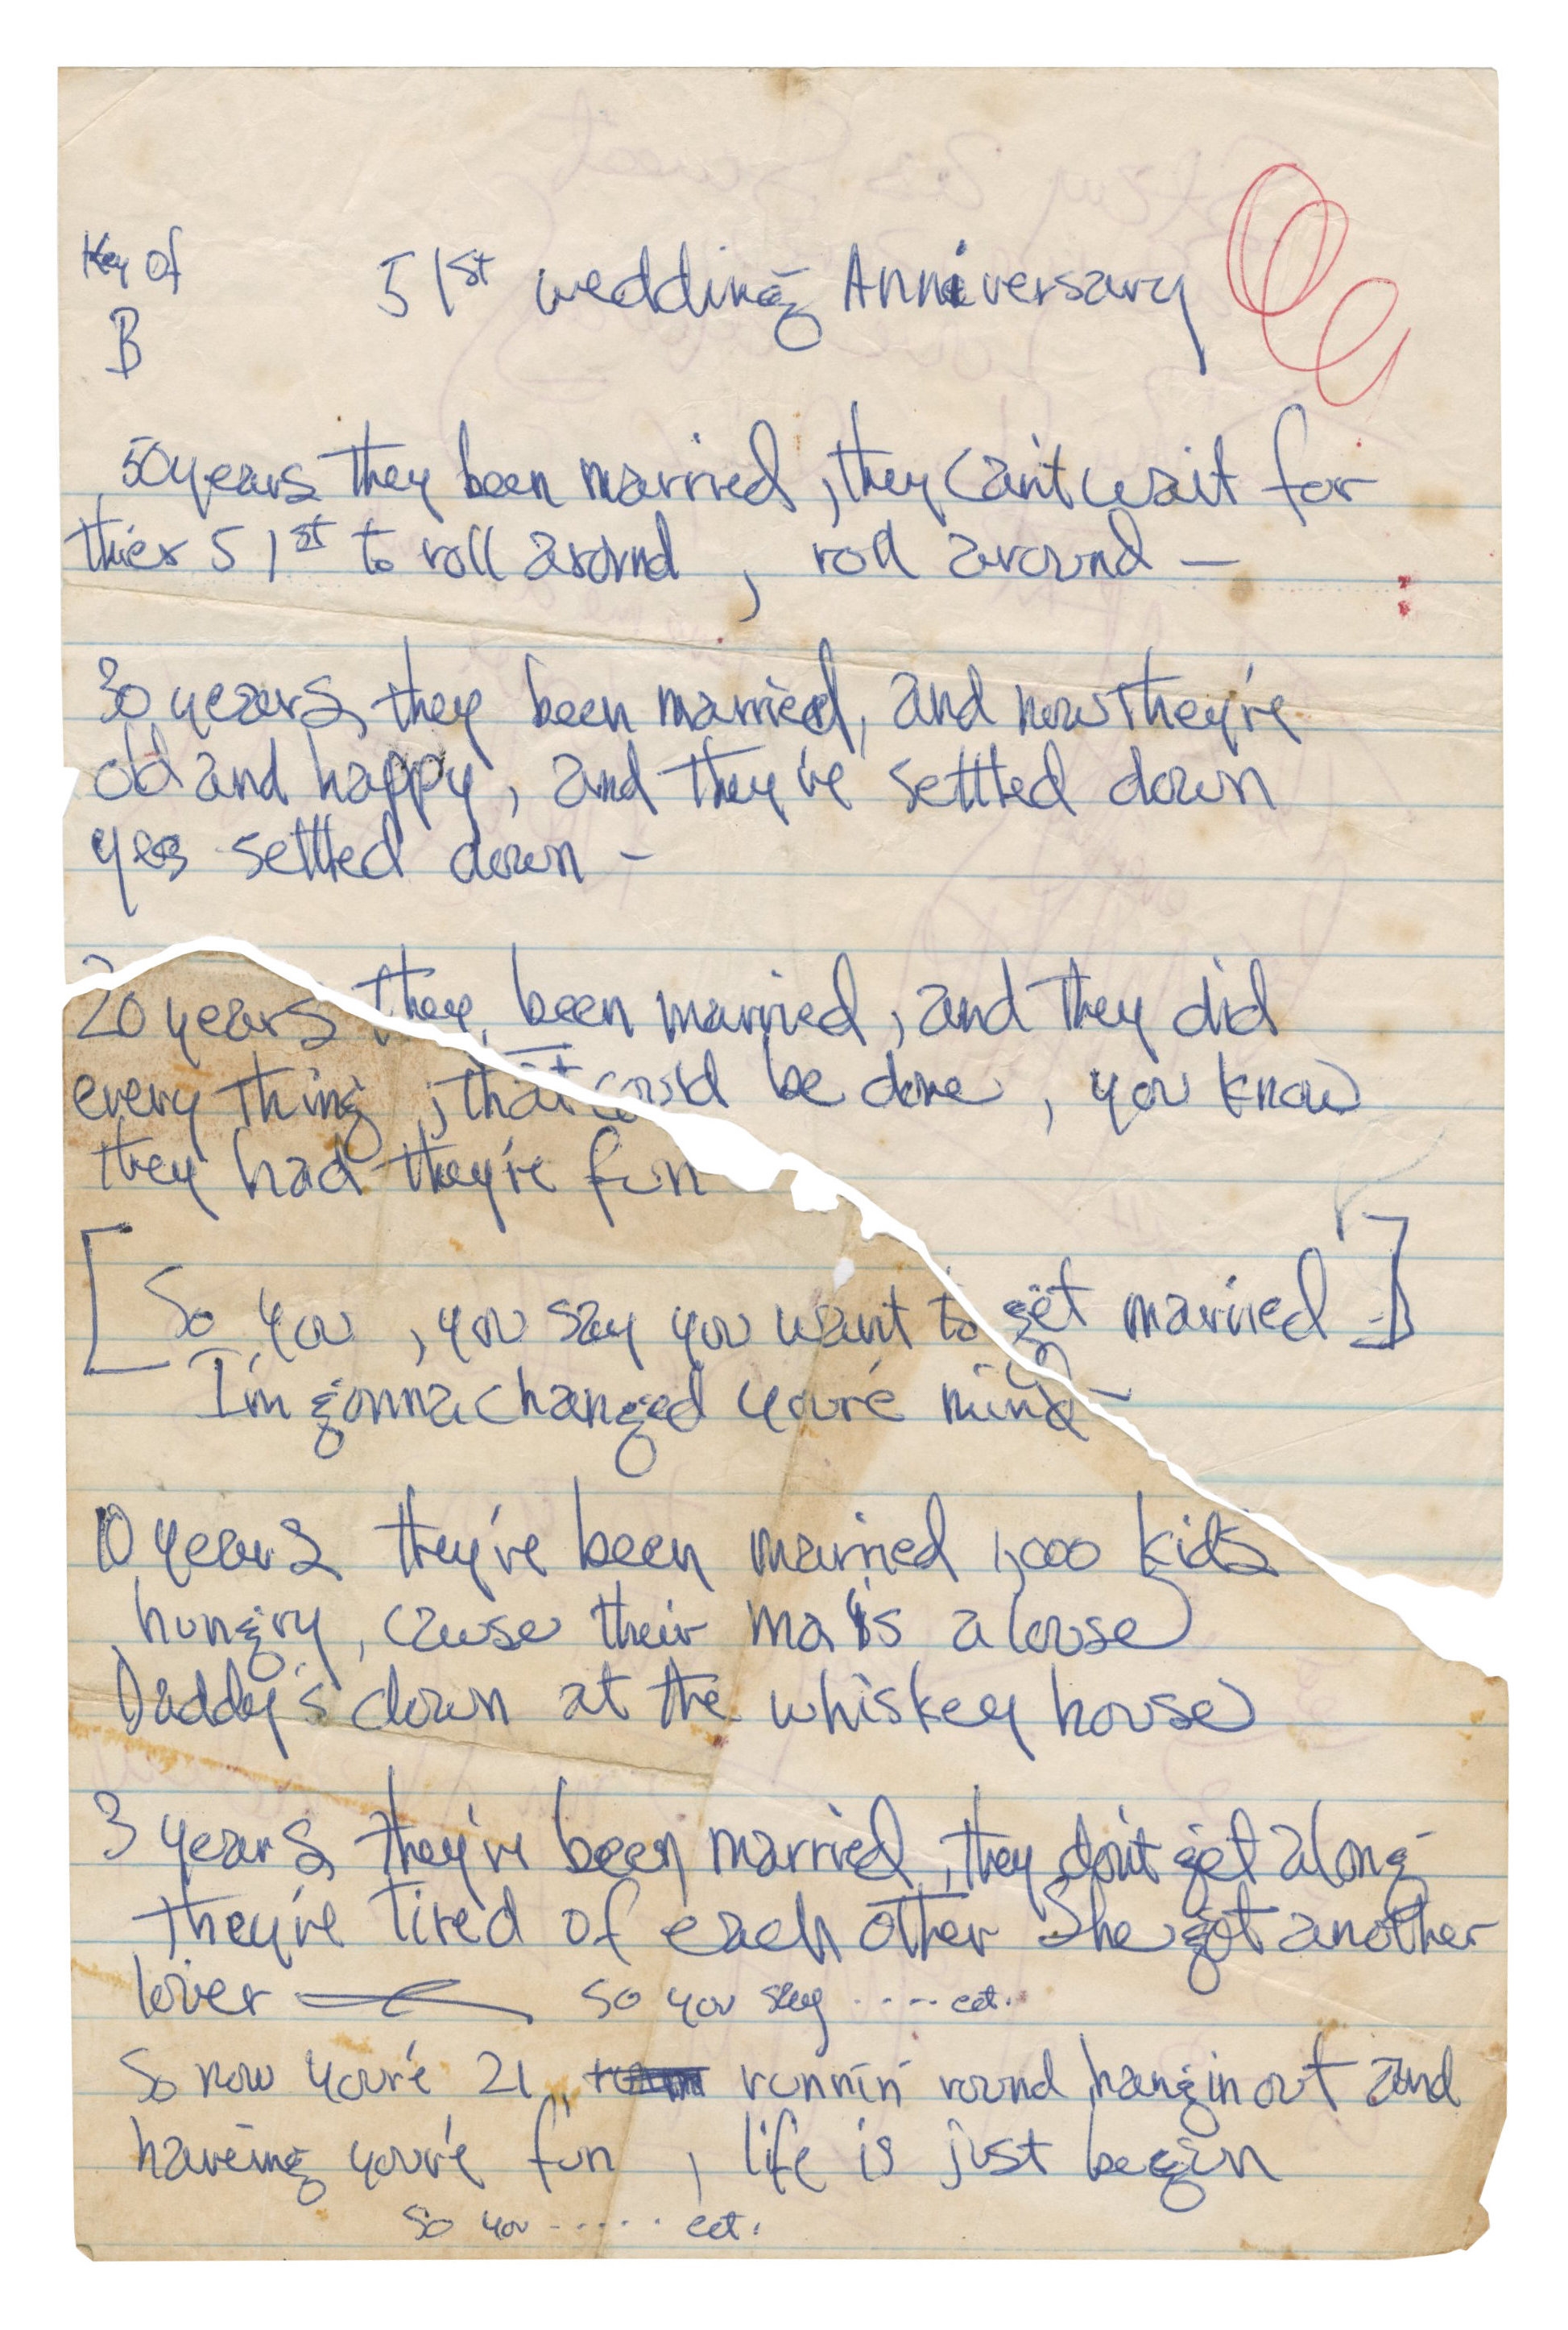 Key Of
B
51st wedding Anniversary
50 years they been married, they can't wait for
thier 51st to roll around, roll around —
30 years they been married, and now they're
old and happy, and they've settled down
yes settled down –
20 years they been married, and they did
every thing, that could be done, you know
they had they're fun
[So you, you say you want to get married]
I'm gonna changed you're mind –
10 years they've been married 1,000 kids
hungry, cause their ma is a louse
Daddy's down at the whiskey house
3 years they've been married, they don't get along
they're tired of each other She got another
lover — so you say ..... ect.
So now you're 21, runnin' round hangin out and
haveing you're fun, life is just begin
So you ...... ect.